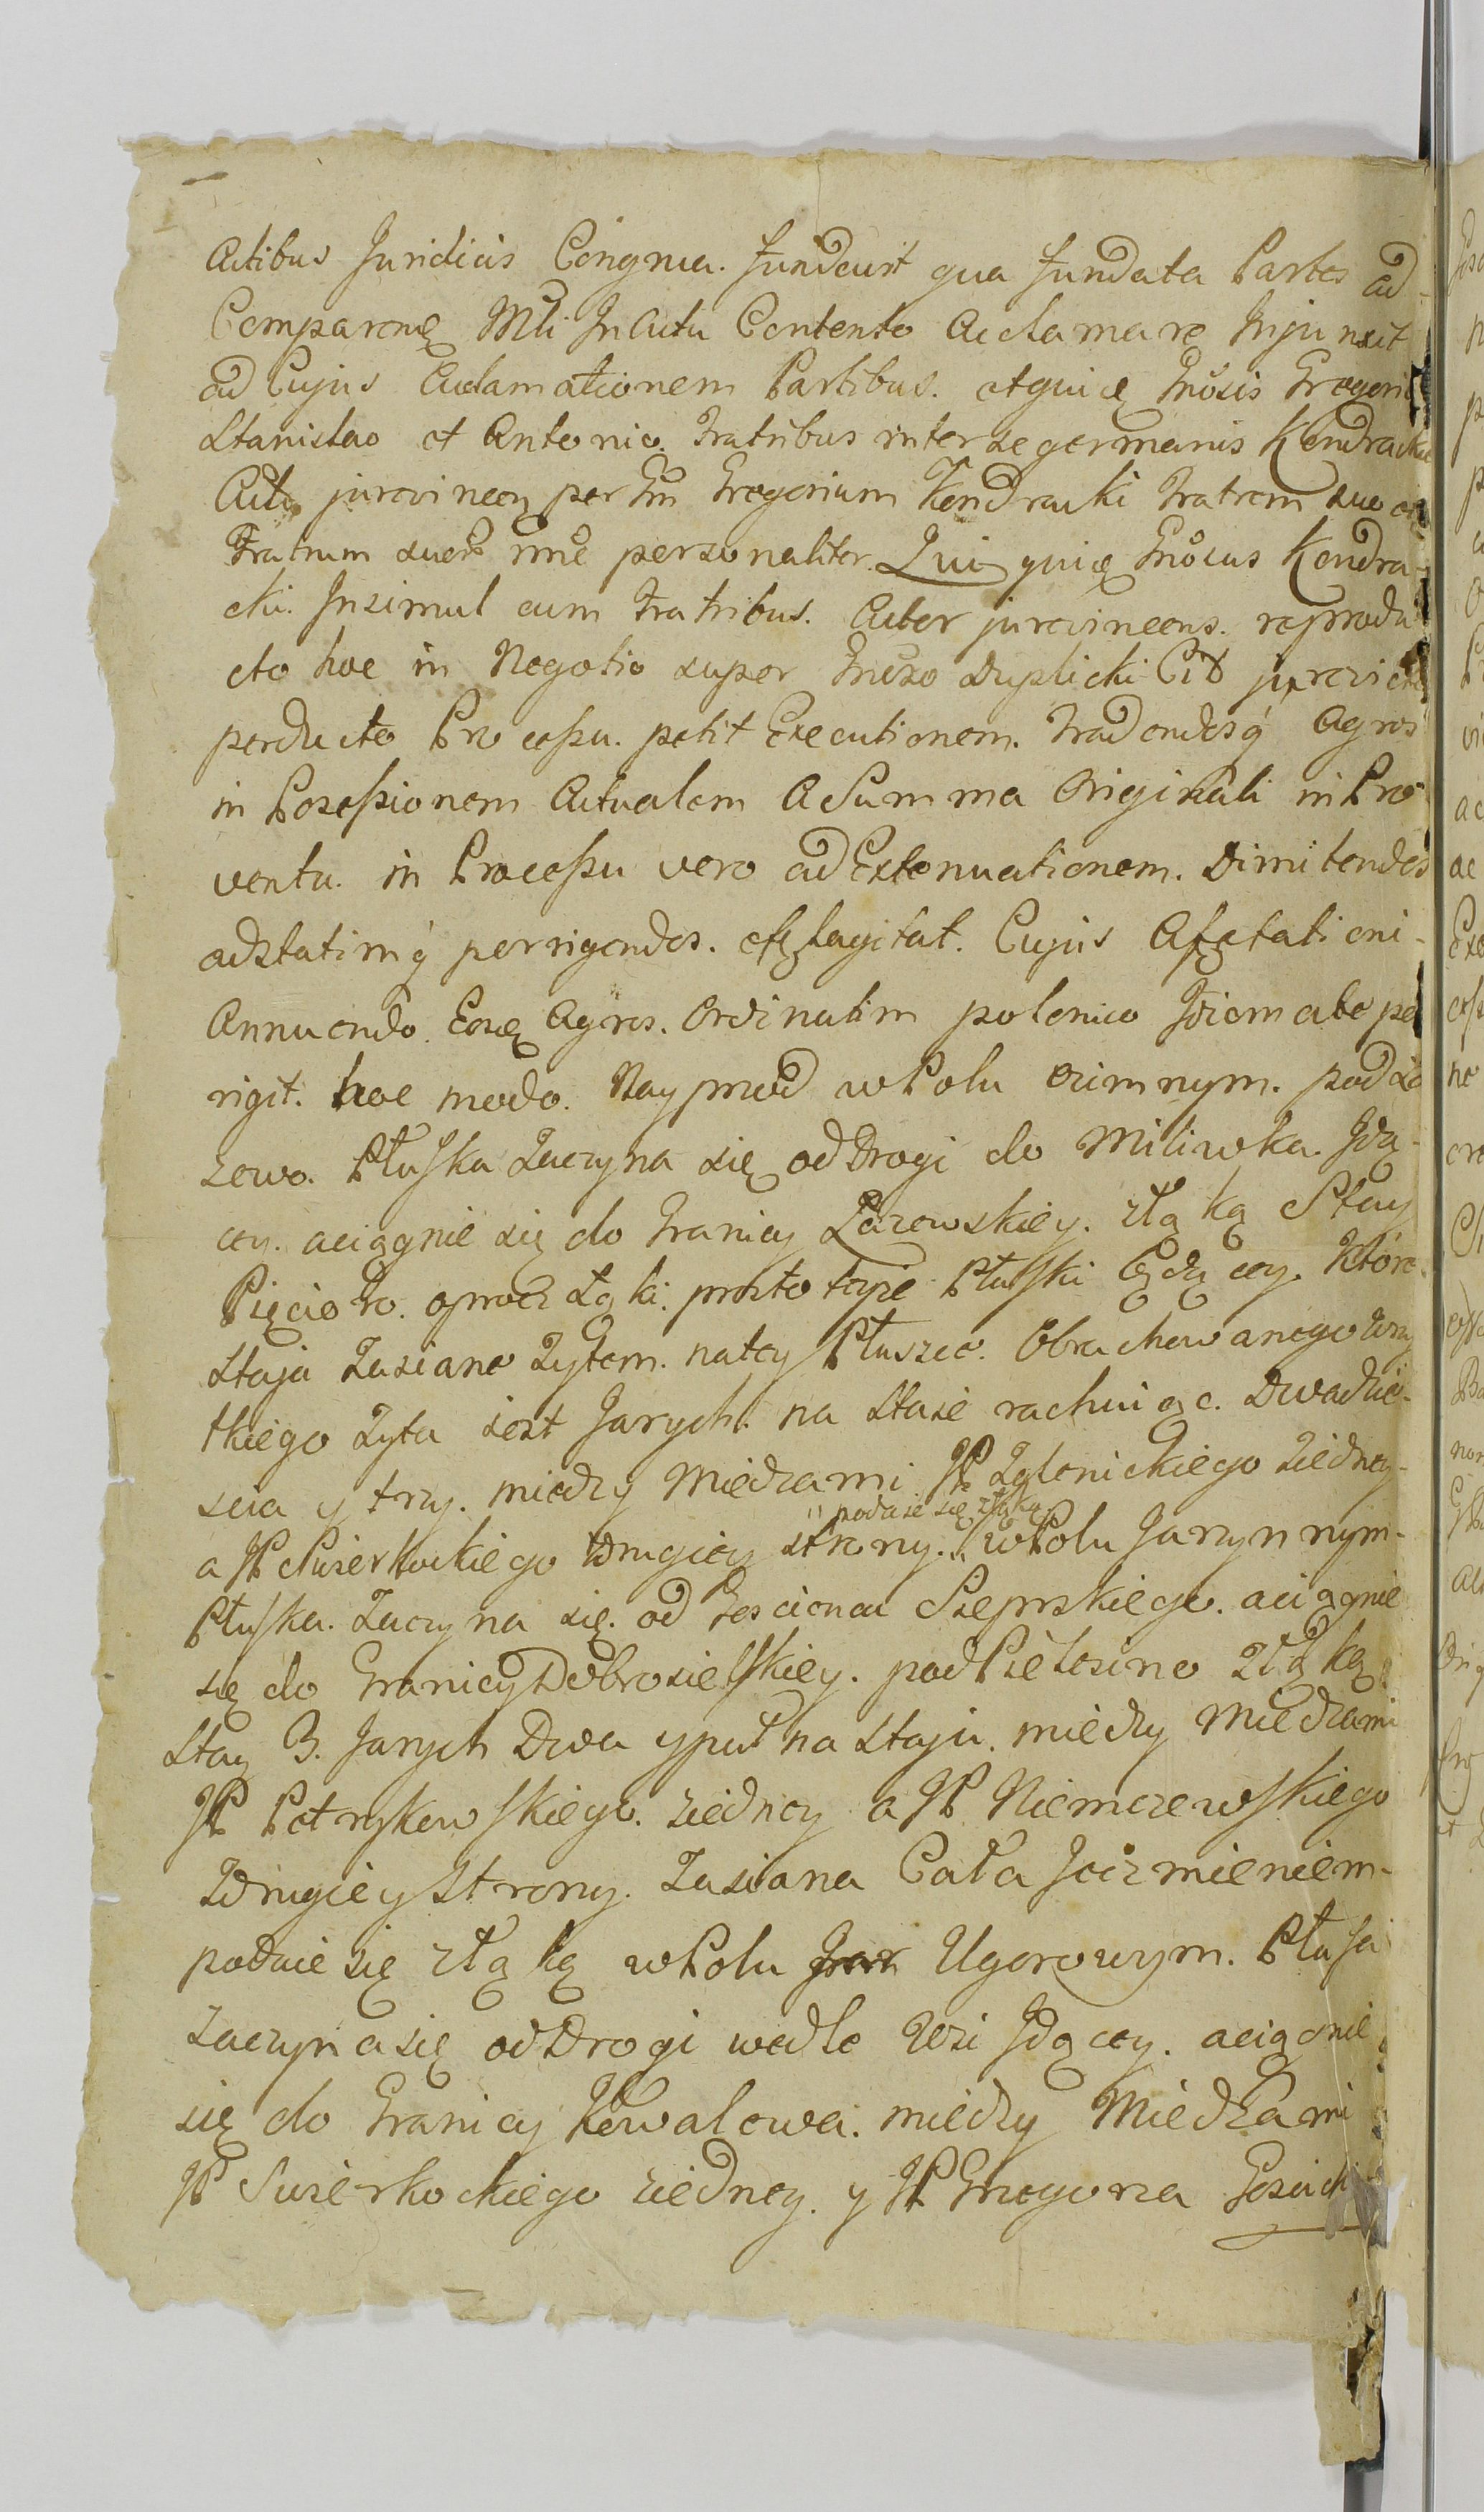 Actibus Juridicis Congrua. fundavit qua fundata Partes ad
Comparenę Mli In Actu Contento Acclamare Injunxit
ad Cujus Acclamationem Partibus. etquidę Gnosis Gregorio
Stanislao et Antonio. Fratribus inter se germanis Kendracki
Actō jurevincen per Gm Gregorium Kendracki Fratrem suo et
Fratrum suor nne personaliter. Qui quidę Gnosus Kendra-
cki. Insimul cum Fratribus. Actor jurevincens. reprodu
cto hoc in Negotio super Gneso Duplicki Cit jurevicto
perducto Processu. petit Executionem. Tradendosq Agros
in Possessionem Actualem A Summa Originali in Pro
ventu. in Processu vero ad Extenuationem. Dimitendos
adstatimq porrigendos. efflagitat. Cujus Afectationi-
Annuendo. Eosdę Agros. Ordinatim polonico Idiomate po
rigit. hoc modo. Nayprwod w Polu ozimnym. pod Lo
zowo. Płuska Zaczyna się od Drogi do Miliwka. Idą-
cey. aciągnie się do Granicy Lozowskiey. z Łąką Stay
Pięcioro. oprocz Łąki. prosto teyże Płuski Będącey. które
Staja Zasiane Żytem. na tey Płuszce. Obrachowanego wszy
tkiego Żyta iest Jarych. na Staie rachuiąc. Dwadzie-
scia y trzy. między Miedzami JP Zglenickiego ziedney-
a JP Swierkockiego zdrugiey strony. " podaie się złąką " wPolu Jarzynnym-
Płuska. Zaczyna się. od Goscienca Sieprskiego. aciągnie
się do Granicy Dobrosielskiey. pod Pielesino zŁąką
Stay 3. Jarych Dwa y puł na Staju. między Miedzami
JP Petrykowskiego. ziedney a JP Niemczewskiego
zdrugiey Strony. Zasiana Cała Jęczmieniem-
podaie się złąką wPolu Ugorowym. Płusa
zaczyna się od Drogi wedle Wsi Idącey. aciągnie
się do Granicy Kowalowa. między Miedzami
JP Swierkockiego ziedney. y JP Grzegorza